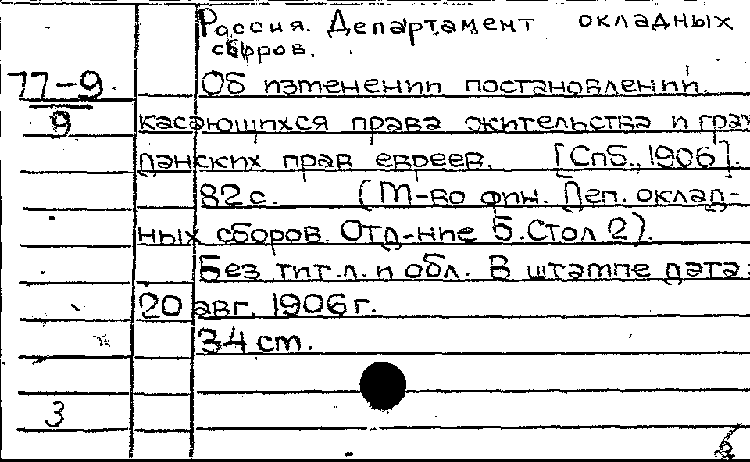 Россия. Департамент окладных
сборов.
77-9. Об изменении постановлений,
9 касающихся права жительства и граж
данских прав евреев. [Спб., 1906].
82 с. (М-во фин. Деп. оклад-
ных сборов. Отд-ние 5. Стол 2).
Без тит. л. и обл. В штампе дата:
20 авг. 1906 г.
34 ст.
3